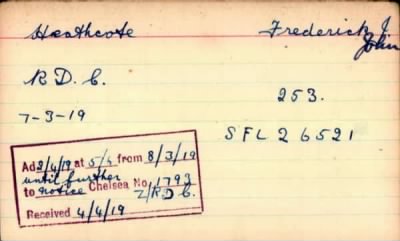 Heathcote Frederick J.
John
R.D.C.
253.
7-3-19
SFL 26521
Ad 2/4/19 at 5/4 from 8/3/19
until further
to notice Chelsea No. 1793
Z/RDC.
Received 4/4/19